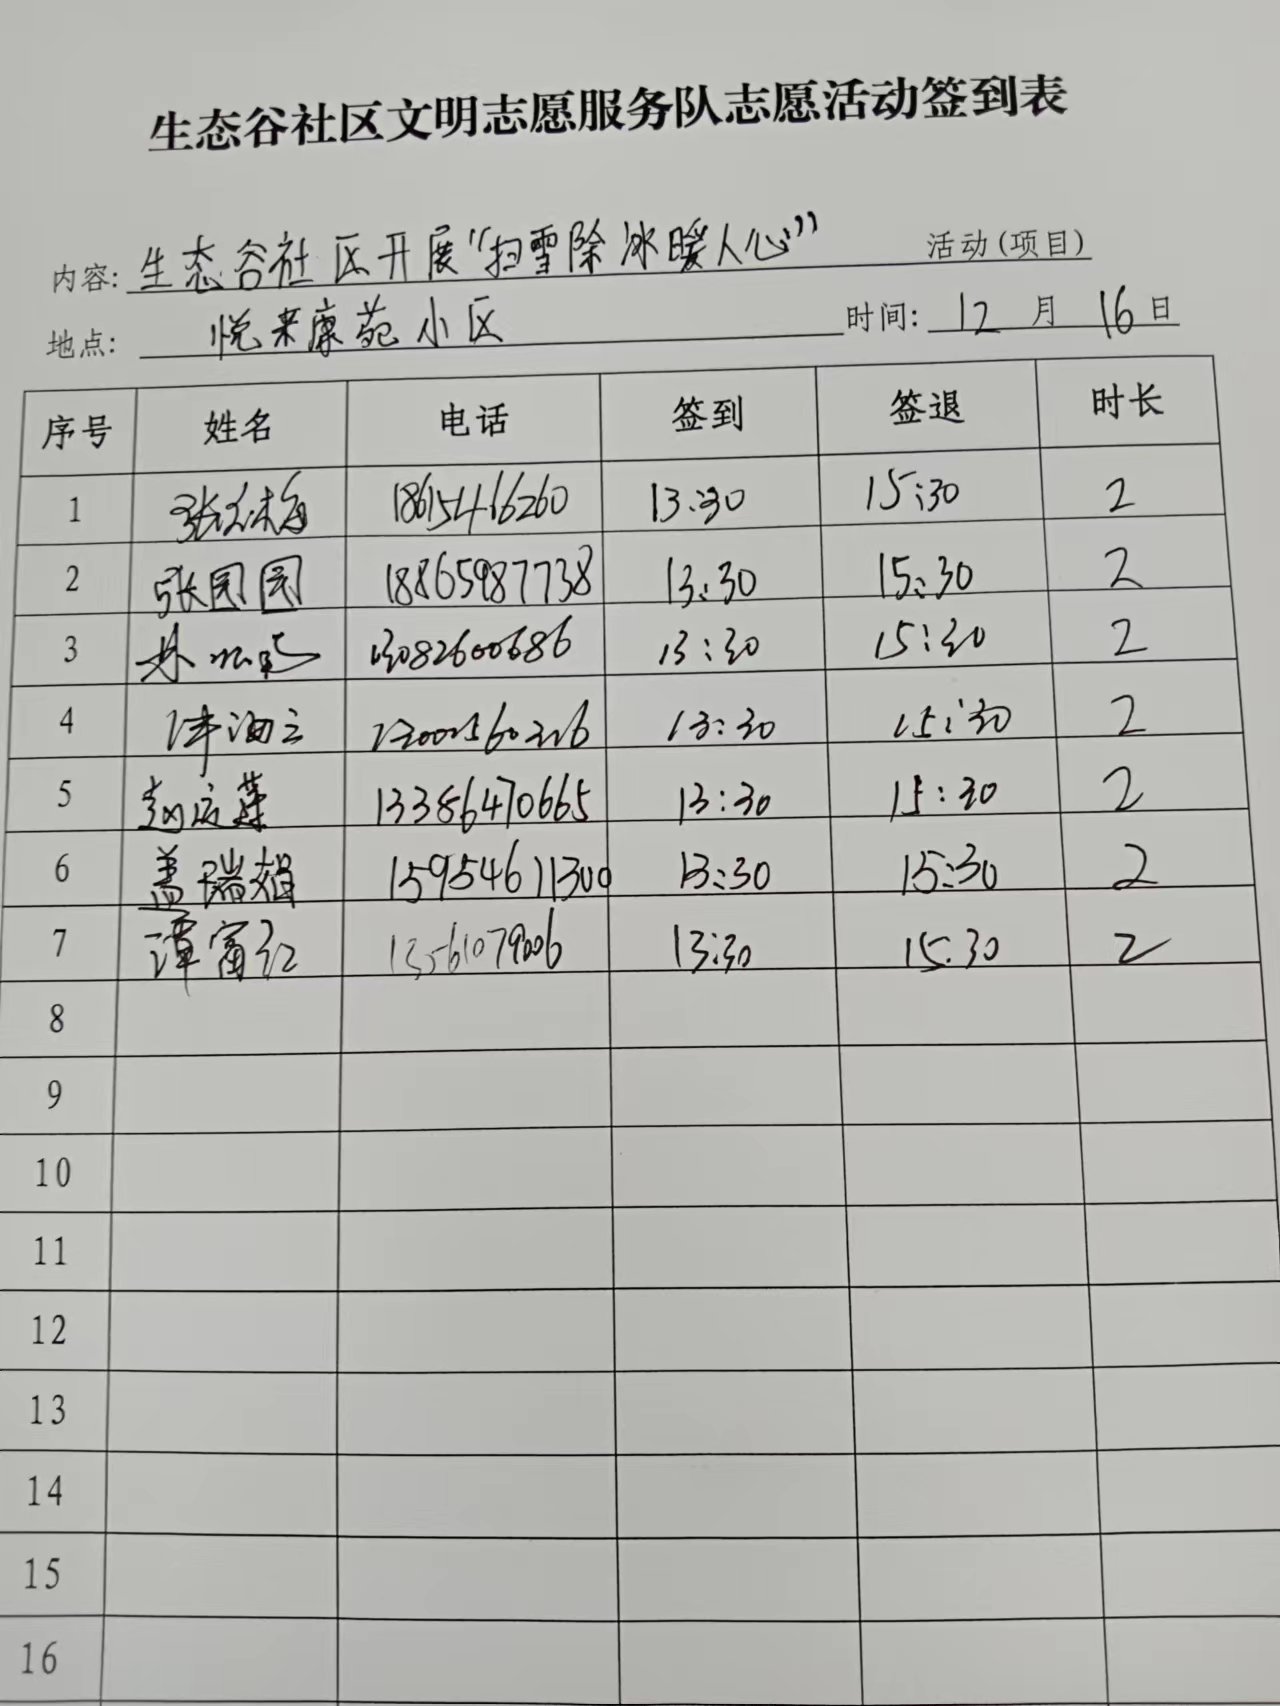 生态谷社区文明志愿服务队志愿活动签到表
内容: 生态谷社区开展“扫雪除冰暖人心” 活动(项目)
地点: 悦来康苑小区 时间: 12 月 16 日
序号 姓名 电话 签到 签退 时长
1 18615466260 13:30 15:30 2
2 张园园 18865987738 13:30 15:30 2
3 13082600686 13:30 15:30 2
4 13:30 15:30 2
5 13386470665 13:30 15:30 2
6 盖瑞娟 15954611300 13:30 15:30 2
7 谭富红 13561079006 13:30 15:30 2
8
9
10
11
12
13
14
15
16